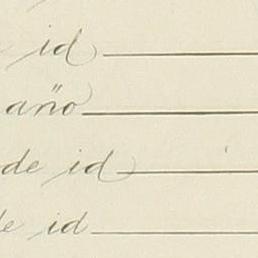 id
año
de id
de id